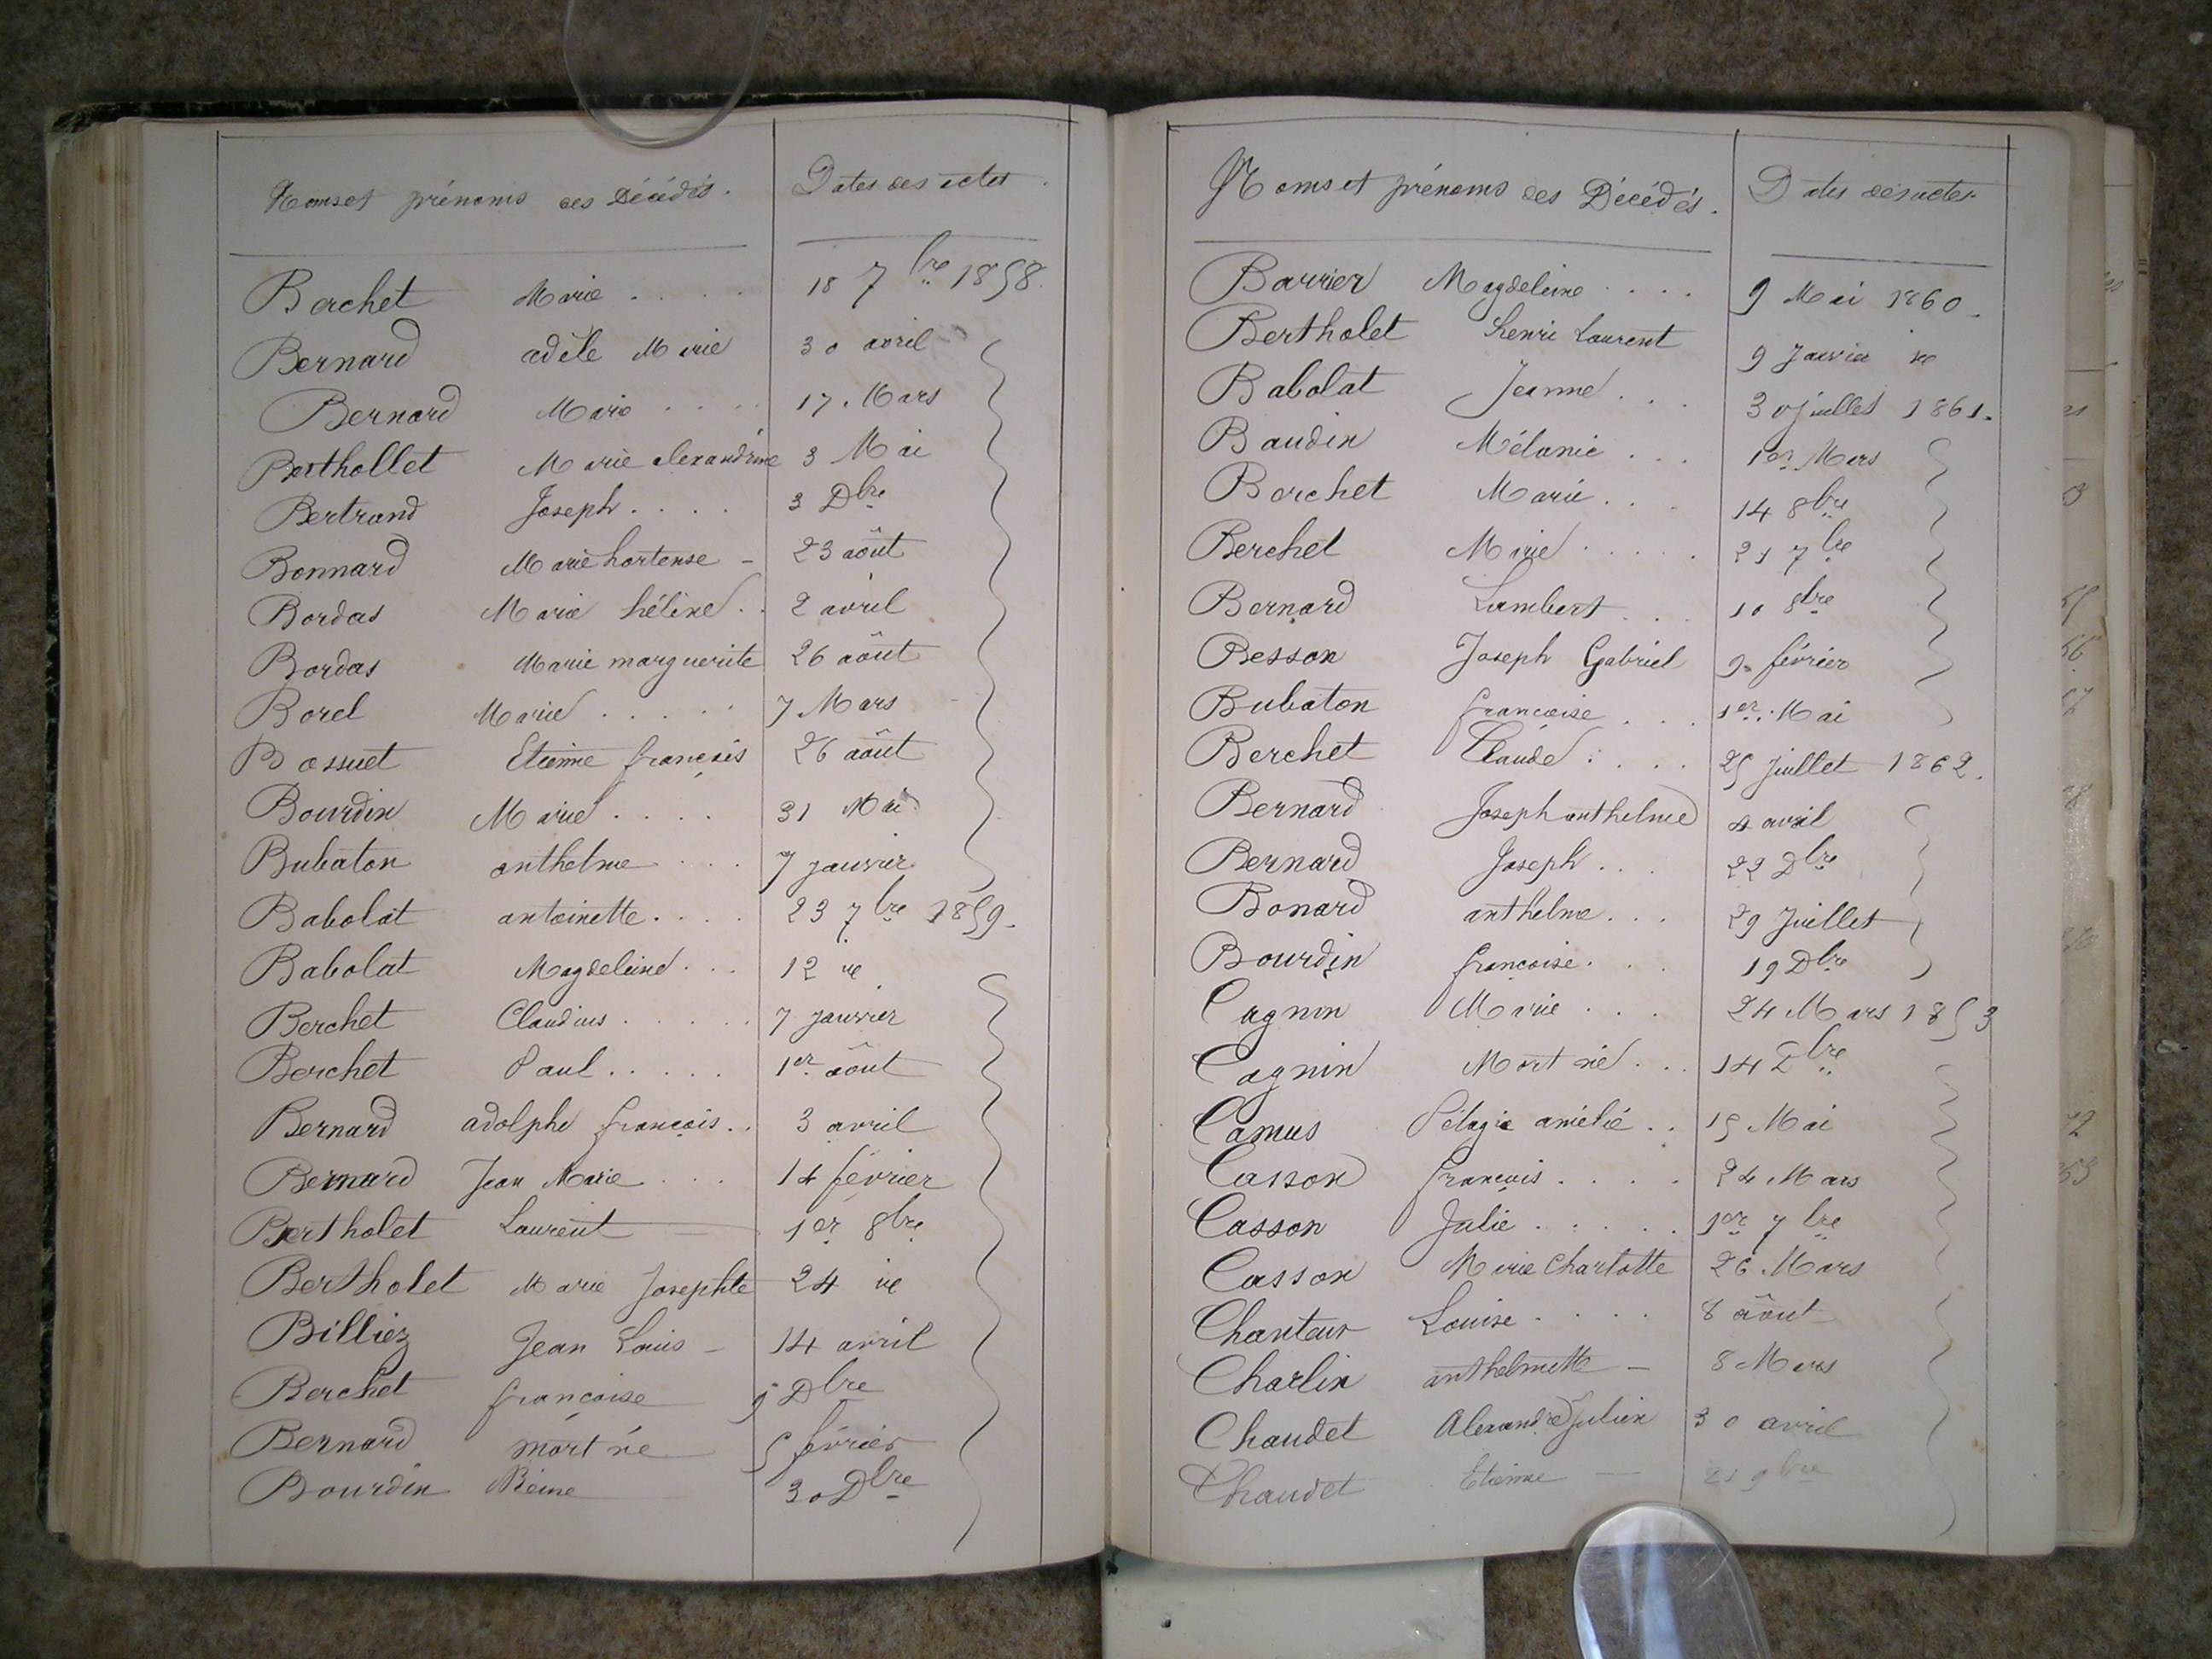 Noms et prénoms des Décédés. Dates des actes.
Berchet Marie .... 18 7bre 1858.
Bernard adèle Marie 30 avril
Bernard Marie .... 17. Mars
Berthollet Marie alexandrine 3 Mai
Bertrand Joseph .... 3 Dbre
Bonnard Marie hortense - 23 aôut
Bordas Marie hélène .. 2 avril
Bordas Marie marguerite 26 aôut
Borel Marie ..... 7 Mars
Bossuet Etienne françois 26 aôut
Bourdin Marie .... 31 Mai
Bubaton anthelme .... 7 janvier
Babolat antoinette .... 23 7bre 1859.
Babolat Magdeleine ... 12 ve
Berchet Claudius ..... 7 janvier
Berchet Paul ..... 1er aôut
Bernard adolphe françois .. 3 avril
Bernard Jean Marie ... 14 février
Bertholet Laurent 1er 8bre
Bertholet Marie Josephte 24 ve
Billiez Jean Louis - 14 avril
Berchet françoise 9 Dbre
Bernard mort né 5 février
Bourdin Reine 30 Dbre
Noms et prénoms des Décédés. Dates des actes.
Barrier Magdeleine .... 9 Mai 1860.
Bertholet henri Laurent 9 Janvier ve
Babolat Jeanne ... 30 juillet 1861.
Baudin Mélanie ... 1er Mars
Berchet Marie ... 14 8bre
Berchet Marie ..... 21 7bre
Bernard Lambert ... 10 8bre
Besson Joseph Gabriel 9. février
Bubaton françoise ... 1er Mai
Berchet Claude .... 25 Juillet 1862.
Bernard Joseph anthelme 4 avril
Bernard Joseph ... 22 Dbre
Bonard anthelme ... 29 Juillet
Bourdin françoise ... 19 Dbre
Cagnin Marie ... 24 Mars 1853
Cagnin Mort né ... 14 Dbre
Camus Pélagie amélie .. 15 Mai
Casson françois .... 24 Mars
Casson Julie ..... 1er 7bre
Casson Marie Charlotte 26 Mars
Chanteur Louise .... 8 aôut
Charlin anthelmette - 8 Mars
Chaudet Alexandre Julien 30 avril
Chaudet Etienne 21 9bre